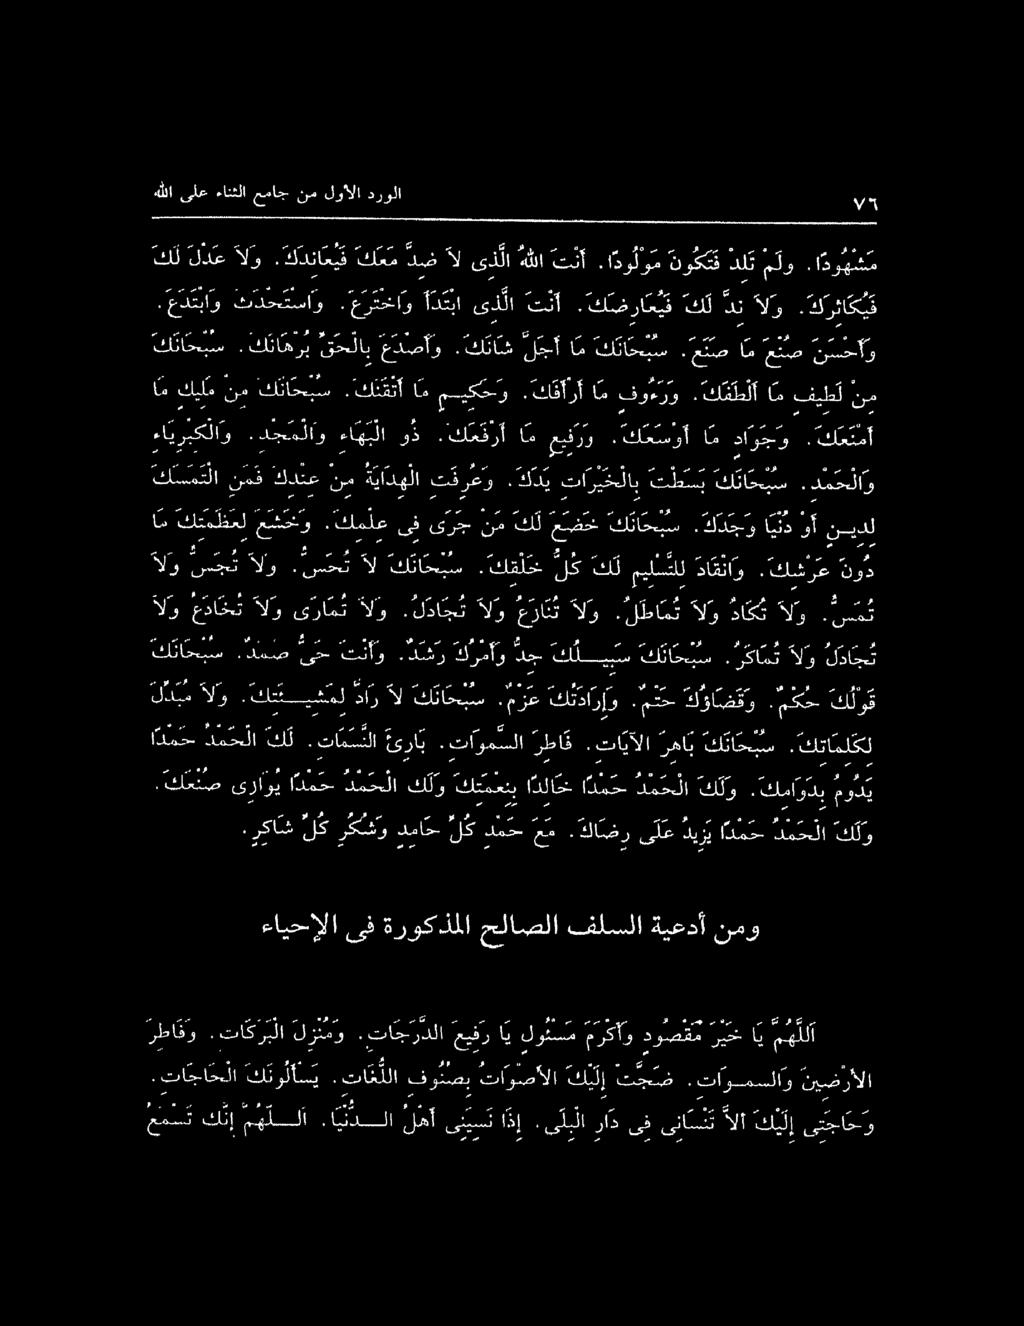 ٧٦
الورد الأول من جامع الثناء على الله
مَشْهُودًا. وَلَمْ تَلِدْ فَتَكُونَ مَوْلُودًا. أَنْتَ اللهُ الَّذِى لاَ ضِدَّ مَعَكَ فَيُعَانِدَكَ. وَلاَ عَدْلَ لَكَ
فَيُكَاثِرَكَ. وَلاَ نِدَّ لَكَ فَيُعَارِضَكَ. أَنْتَ الَّذِى ابْتَدَأَ وَاخْتَرَعَ. وَاسْتَحْدَثَ وَابْتَدَعَ.
وَأَحْسَنَ صُنْعَ مَا صَنَعَ. سُبْحَانَكَ مَا أَجَلَّ شَانَكَ. وَأَصْدَعَ بِالْحَقِّ بُرْهَانَكَ. سُبْحَانَكَ
مِنْ لَطِيفٍ مَا أَلْطَفَكَ. وَرَءُوفٍ مَا أَرْأَفَكَ. وَحَكِيمٍ مَا أَتْقَنَكَ. سُبْحَانَكَ مِنْ مَلِيكٍ مَا
أَمْنَعَكَ. وَجَوَادٍ مَا أَوْسَعَكَ. وَرَفِيعٍ مَا أَرْفَعَكَ. ذُو الْبَهَاءِ وَالْمَجْدِ. وَالْكِبْرِيَاءِ
وَالْحَمْدِ. سُبْحَانَكَ بَسَطْتَ بِالْخَيْرَاتِ يَدَكَ. وَعُرِفَتِ الْهِدَايَةُ مِنْ عِنْدِكَ فَمَنِ الْتَمَسَكَ
لِدِينٍ أَوْ دُنْيَا وَجَدَكَ. سُبْحَانَكَ خَضَعَ لَكَ مَنْ جَرَى فِى عِلْمِكَ. وَخَشَعَ لِعَظَمَتِكَ مَا
دُونَ عَرْشِكَ. وَانْقَادَ لِلتَّسْلِيمِ لَكَ كُلُّ خَلْقِكَ. سُبْحَانَكَ لاَ تُحَسُّ. وَلاَ تُجَسُّ وَلاَ
تُمَسُّ. وَلاَ تُكَادُ وَلاَ تُمَاطَلُ. وَلاَ تُنَازَعُ وَلاَ تُجَادَلُ. وَلاَ تُمَارَى وَلاَ تُخَادَعُ وَلاَ
تُجَادَلُ وَلاَ تُمَاكَرُ. سُبْحَانَكَ سَبِيلُكَ جِدٌّ وَأَمْرُكَ رَشَدٌ. وَأَنْتَ حَىٌّ صَمَدٌ. سُبْحَانَكَ
قَوْلُكَ حُكْمٌ. وَقَضَاؤُكَ حَتْمٌ. وَإِرَادَتُكَ عَزْمٌ. سُبْحَانَكَ لاَ رَادَّ لِمَشِيئَتِكَ. وَلاَ مُبَدِّلَ
لِكَلِمَاتِكَ. سُبْحَانَكَ بَاهِرَ الآيَاتِ. فَاطِرَ السَّموَاتِ. بَارِئَ النَّسَمَاتِ. لَكَ الْحَمْدُ حَمْدًا
يَدُومُ بِدَوَامِكَ. وَلَكَ الْحَمْدُ حَمْدًا خَالِدًا بِنِعْمَتِكَ وَلَكَ الْحَمْدُ حَمْدًا يُوَازِى صُنْعَكَ.
وَلَكَ الْحَمْدُ حَمْدًا يَزِيدُ عَلَى رِضَاكَ. مَعَ حَمْدِ كُلِّ حَامِدٍ وَشُكْرِ كُلِّ شَاكِرٍ.
ومن أدعية السلف الصالح المذكورة فى الإحياء
اَللَّهُمَّ يَا خَيْرَ مَقْصُودٍ وَأَكْرَمَ مَسْئُولٍ يَا رَفِيعَ الدَّرَجَاتِ. وَمُنْزِلَ الْبَرَكَاتِ. وَفَاطِرَ
الأَرَضِينَ وَالسموَاتِ. ضَجَّتْ إِلَيْكَ الأَصْوَاتُ بِصُنُوفِ اللُّغَاتِ. يَسْأَلُونَكَ الْحَاجَاتِ.
وَحَاجَتِى إِلَيْكَ أَلاَّ تَنْسَانِى فِى دَارِ الْبِلَى. إِذَا نَسِيَنِى أَهْلُ الدُّنْيَا. اللَّهُمَّ إِنَّكَ تَسْمَعُ